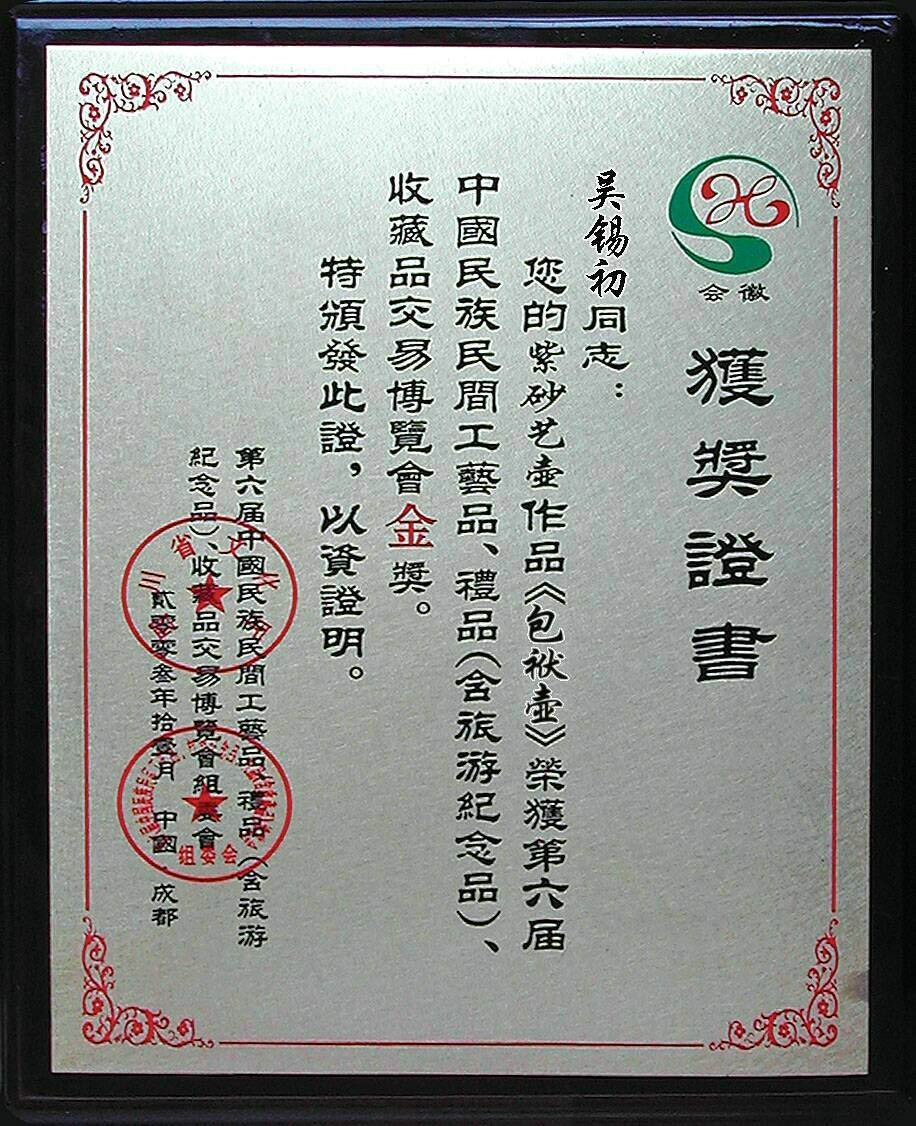 会徽
獲獎證書
吴锡初同志：
您的紫砂艺壶作品《包袱壶》榮獲第六届
中國民族民間工藝品、禮品（含旅游紀念品）、
收藏品交易博覽會金獎。
特頒發此證，以資證明。
第六届中國民族民間工藝品、禮品（含旅游
紀念品）、收藏品交易博覽會組委會
貳零零叁年拾壹月 中國·成都
组委会